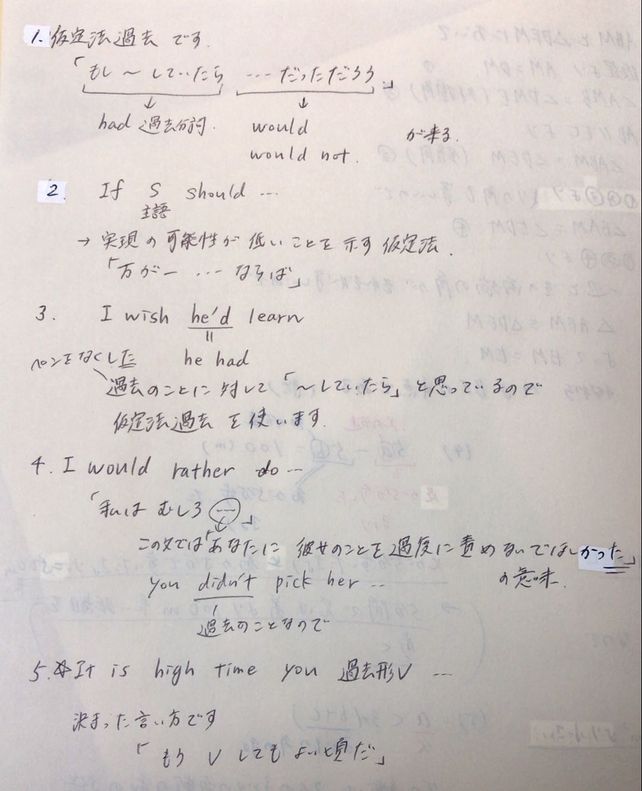 1. 仮定法過去 です.
「もし 〜 していたら … だっただろう」
↓ ↓
had 過去分詞. would が来る.
would not.
2. If S should …
主語
→ 実現の可能性が 低いことを示す仮定法.
「万が一 … ならば」
3. I wish he'd learn
ペンをなくした he had
過去のことに対して「〜していたら」と思っているので
仮定法過去 を使います.
4. I would rather do …
「私は むしろ … 」
この文では「あなたに 彼女のことを過度に責めないでほしかった」
you didn't pick her … の意味.
過去のことなので
5. It is high time you 過去形V …
決まった言い方です
「もう V してもよい頃だ」